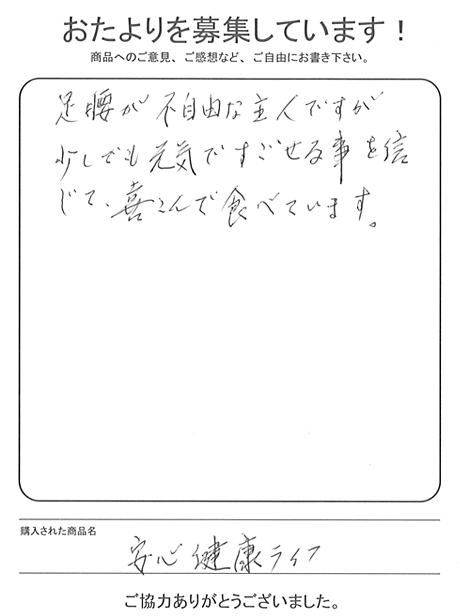 おたよりを募集しています！
商品へのご意見、ご感想など、ご自由にお書き下さい。
足腰が不自由な主人ですが
少しでも元気ですごせる事を信
じて、喜こんで食べています。
購入された商品名
安心健康ライフ
ご協力ありがとうございました。